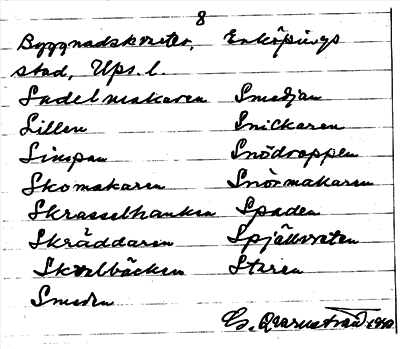 8
Byggnadskvarter, Enköpings
stad, Ups. l.
Sadelmakaren Smedjan
Lillen Snickaren
Simpan Snödroppen
Skomakaren Snörmakaren
Skrasselhanken Spaden
Skräddaren Spjällvreten
Skvalbäcken Staren
Smeden
G. Qvarnström 1940